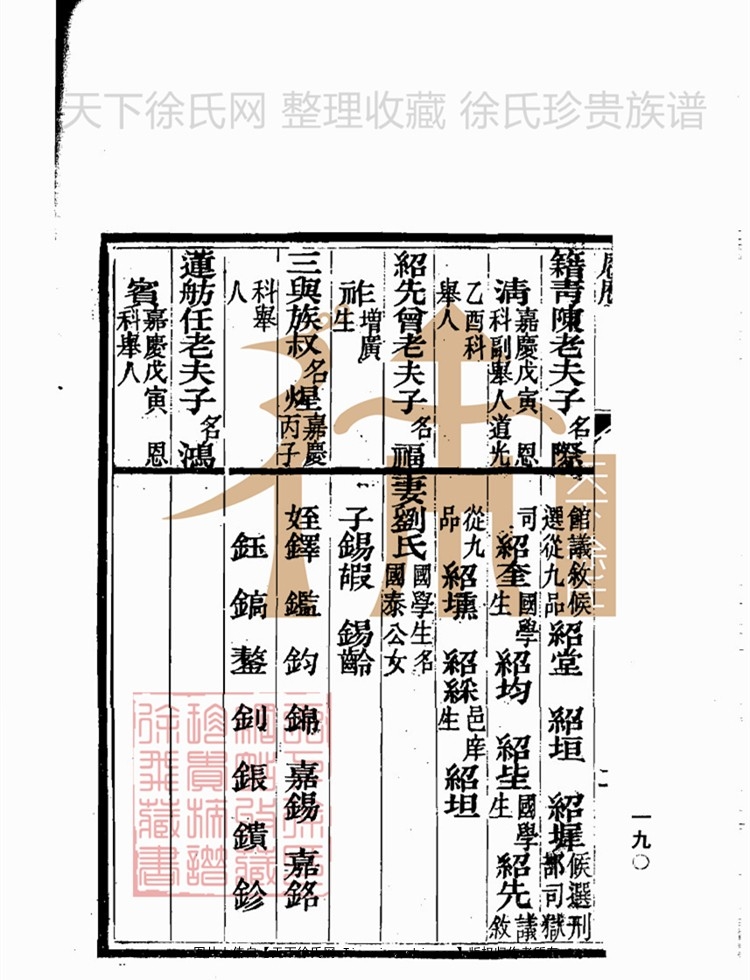 天下徐氏网 整理收藏 徐氏珍贵族谱
籍青陳老夫子名際
清嘉慶戊寅恩科副舉人道光
乙酉科舉人
紹先曾老夫子名福
祚增廣生
三與族叔名煋嘉慶丙子
科舉人
蓮舫任老夫子名鴻
賓嘉慶戊寅恩科舉人
館議敘候選從九品 紹堂 紹垣 紹墀候選刑部司獄
司 紹奎國學生 紹均 紹坒國學生 紹先議敘
從九品 紹壎 紹綵邑庠生 紹坦
妻劉氏國學生名國泰公女
子錫嘏 錫齡
姪鐸 鑑 鈞 錦 嘉錫 嘉銘
鈺 鎬 鏊 釗 鋹 鐀 鉁
二
一九〇